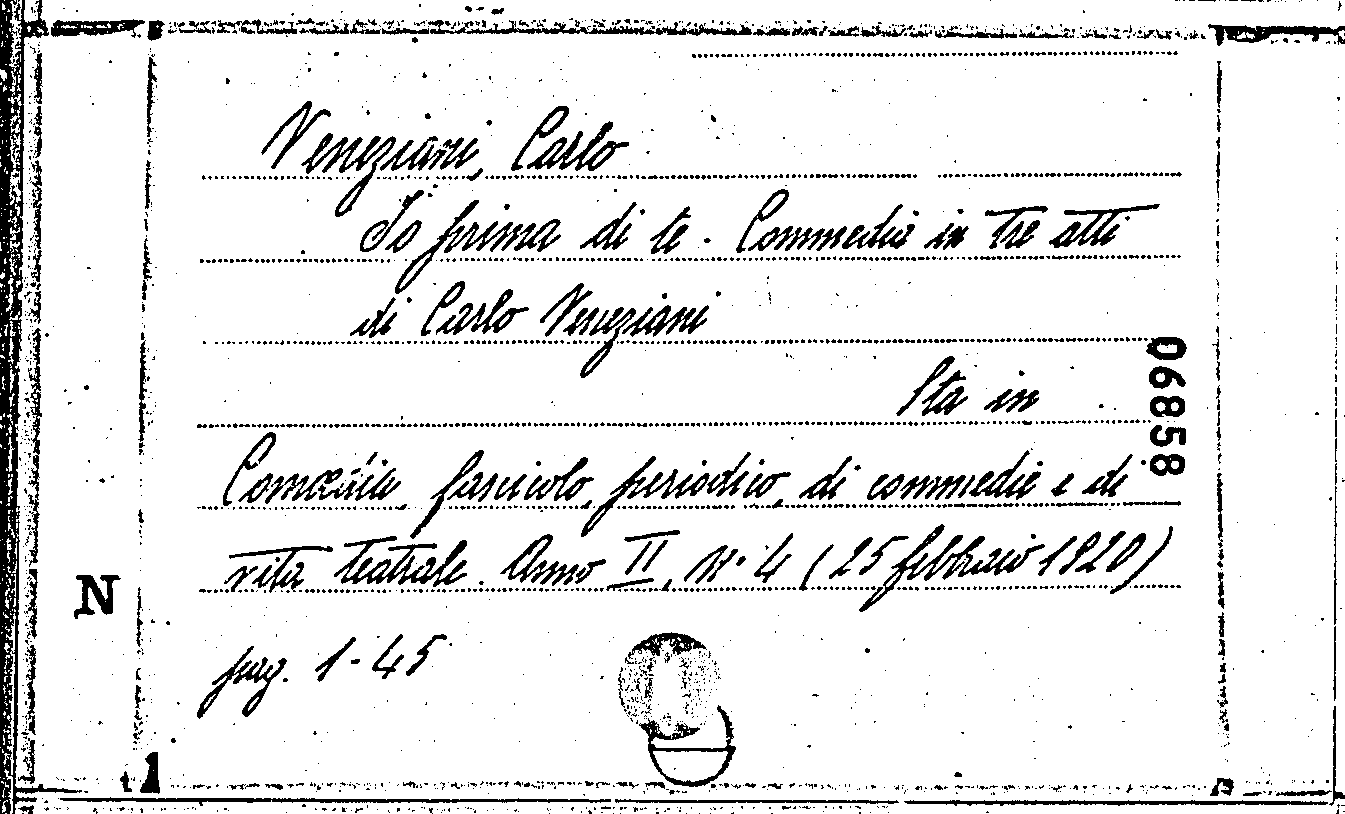 Veneziani, Carlo
Io prima di te. Commedia in tre atti
di Carlo Veneziani
Sta in
06858
Comœdia, fascicolo, periodico, di commedie e di
vita teatrale. Anno II, N. 4 (25 febbraio 1920)
N
pag. 1-45
1